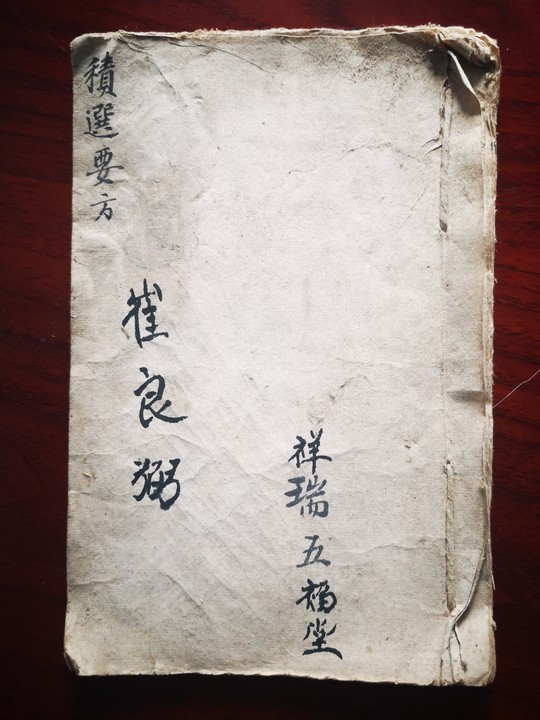 積選要方
崔良弼
祥瑞五福堂